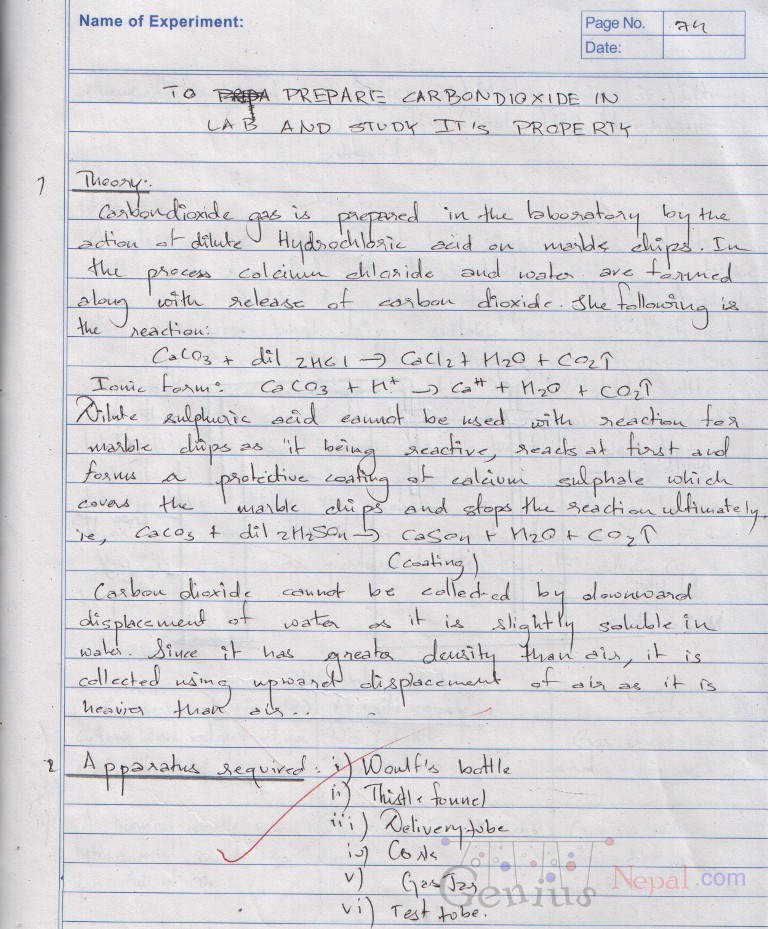 Name of Experiment:
Page No. 74
Date:
TO PREPARE CARBONDIOXIDE IN
LAB AND STUDY IT'S PROPERTY
1 Theory:
Carbondioxide gas is prepared in the laboratory by the
action of dilute Hydrochloric acid on marble chips. In
the process calcium chloride and water are formed
along with release of carbon dioxide. The following is
the reaction:
CaCO3 + dil 2HCl → CaCl2 + H2O + CO2↑
Ionic form: CaCO3 + H+ → Ca++ + H2O + CO2↑
Dilute sulphuric acid cannot be used with reaction for
marble chips as it being reactive, reacts at first and
forms a protective coating of calcium sulphate which
covers the marble chips and stops the reaction ultimately.
ie, CaCO3 + dil 2H2SO4 → CaSO4 + H2O + CO2↑
(coating)
Carbon dioxide cannot be collected by downward
displacement of water as it is slightly soluble in
water. Since it has greater density than air, it is
collected using upward displacement of air as it is
heavier than air..
2 Apparatus required: i) Woulf's bottle
ii) Thistle funnel
iii) Delivery tube
iv) Cork
v) Gas Jar
vi) Test tube.
Genius Nepal.com